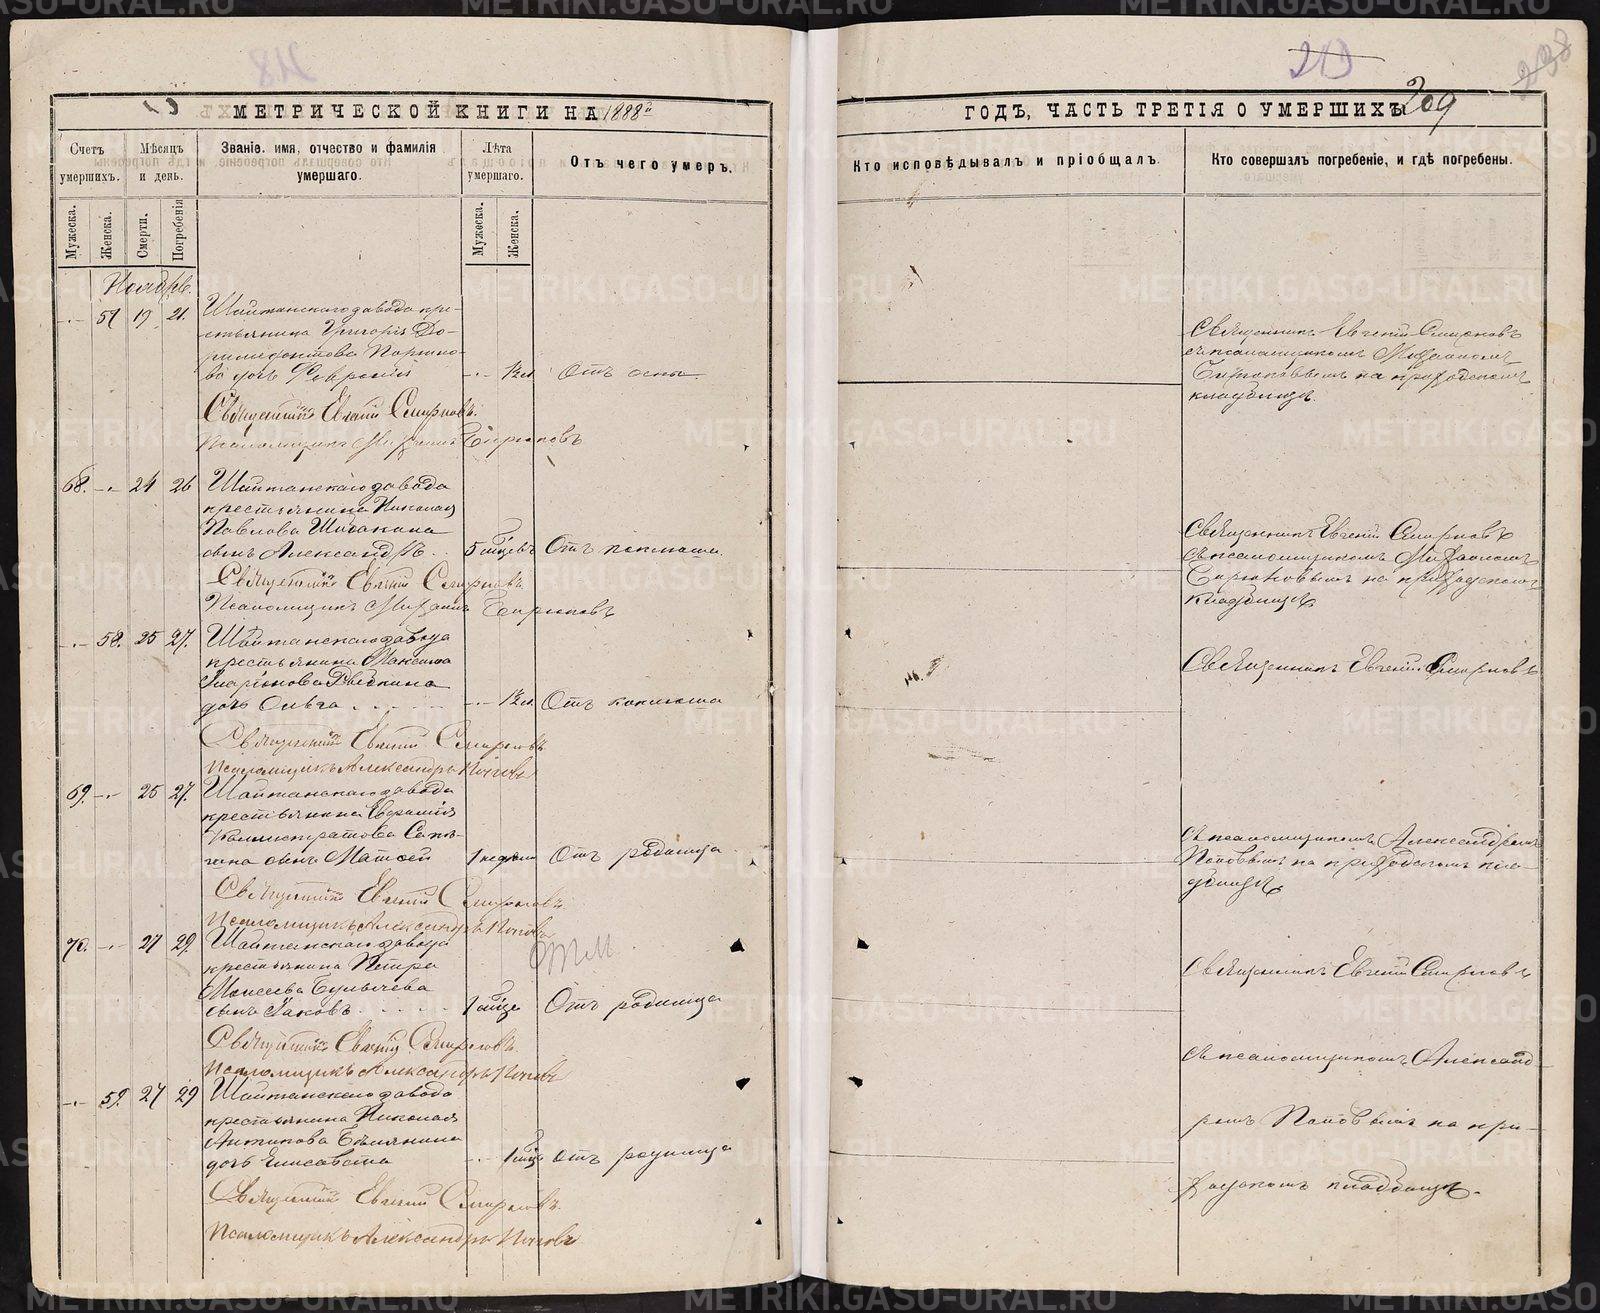 218
213
238
209
МЕТРИЧЕСКОЙ КНИГИ НА 1888й
ГОДЪ, ЧАСТЬ ТРЕТІЯ О УМЕРШИХЪ
Счетъ умершихъ.
Мѣсяцъ и день.
Званіе. имя, отчество и фамилія умершаго.
Лѣта умершаго.
Отъ чего умеръ.
Кто исповѣдывалъ и пріобщалъ.
Кто совершалъ погребеніе, и гдѣ погребены.
Мужеска.
Женска.
Смерти.
Погребенія
Мужеска.
Женска.
Ноябрь.
57 19 21.
Шайтанскаго завода кре-
стьянина Григорія До-
римедонтова
ва дочь Февронія
Отъ оспы.
Священникъ Евгеній Смирновъ
Псаломщикъ Михаилъ Бирюковъ
Священникъ Евгеній Смирновъ
съ псаломщикомъ Михаиломъ
Бирюковымъ на приходскомъ
кладбищѣ.
68. 24 26
Шайтанскаго завода
крестьянина Николая
Павлова
сынъ Александръ
5 мѣсяцевъ Отъ коклюша.
Священникъ Евгеній Смирновъ
Псаломщикъ Михаилъ Бирюковъ
Священникъ Евгеній Смирновъ
съ псаломщикомъ Михаиломъ
Бирюковымъ на приходскомъ
кладбищѣ.
58. 25 27.
Шайтанскаго завода
крестьянина Максима
Иларіонова
дочь Ольга
Отъ коклюша
Священникъ Евгеній Смирновъ
Псаломщикъ Александръ Поповъ
Священникъ Евгеній Смирновъ
69. 25 27.
Шайтанскаго завода
крестьянина
Каллистратова Сапе-
гина сынъ Матвей
1 недѣли Отъ родимца
Священникъ Евгеній Смирновъ
Псаломщикъ Александръ Поповъ
съ псаломщикомъ Александромъ
Поповымъ на приходскомъ кла-
дбищѣ.
70. 27 29.
Шайтанскаго завода
крестьянина Петра
Моисеева Булычева
сынъ Яковъ
1 мѣсяца Отъ родимца
Священникъ Евгеній Смирновъ
Псаломщикъ Александръ Поповъ
Священникъ Евгеній Смирновъ
59. 27 29
Шайтанскаго завода
крестьянина Николая
Антипова
дочь Елисавета
Отъ родимца
Священникъ Евгеній Смирновъ
Псаломщикъ Александръ Поповъ
съ псаломщикомъ Александ-
ромъ Поповымъ на при-
ходскомъ кладбищѣ.
METRIKI.GASO-URAL.RU